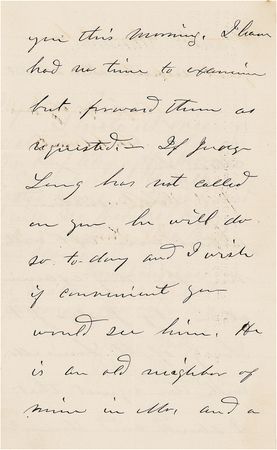 you this morning. I have
had no time to examine
but forward them as
requested.— If Judge
Long has not called
on you he will do
so to-day and I wish
if convenient you
would see him. He
is an old neighbor of
mine in Mo. and a